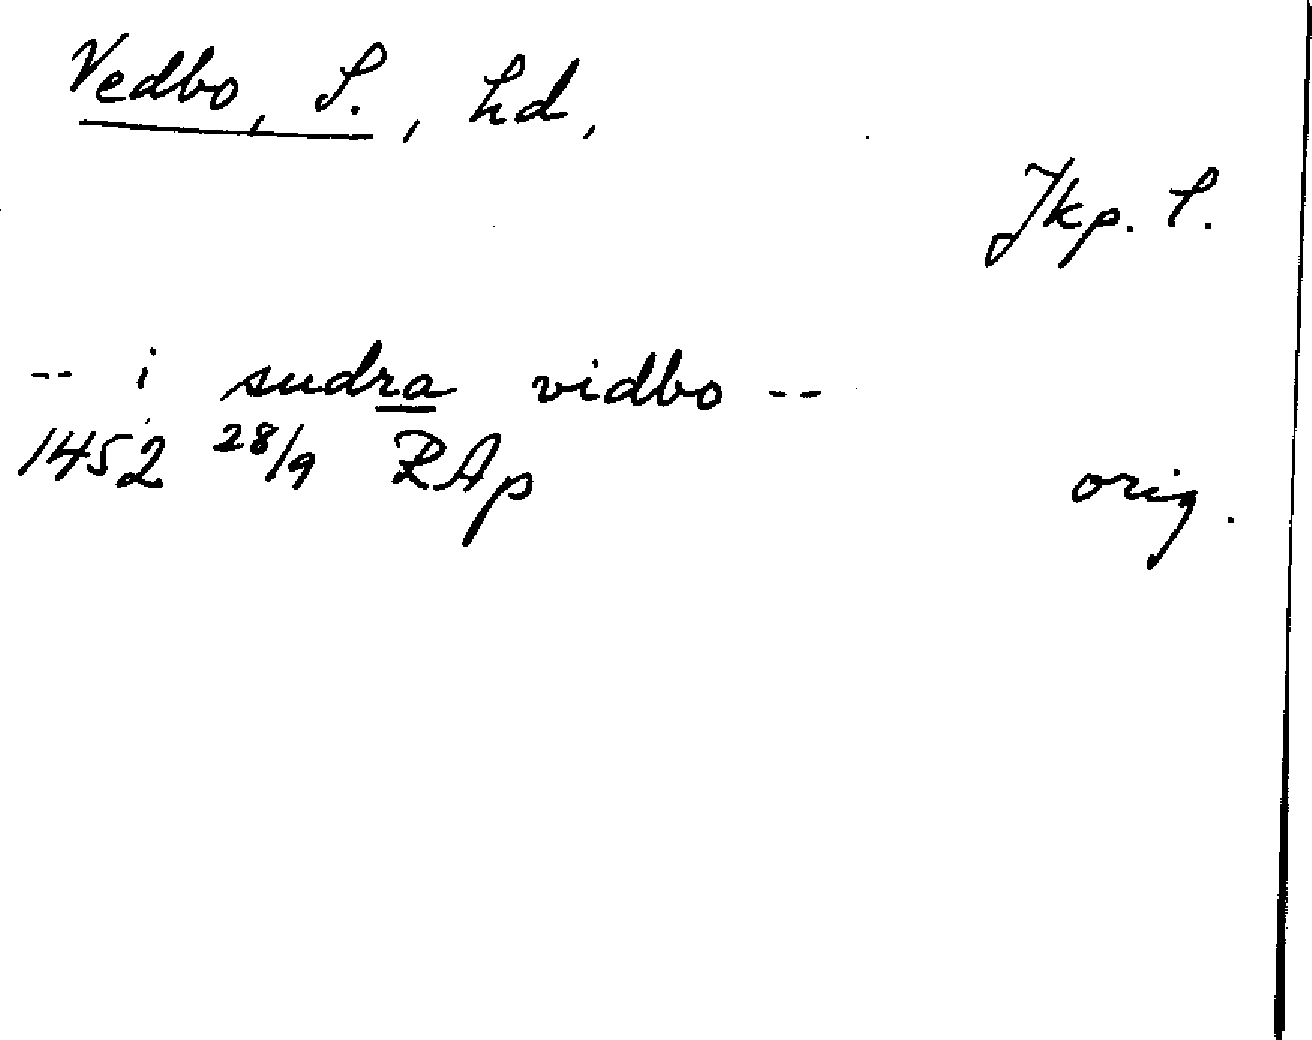 Vedbo, S., hd,
Jkp. l.
-- i sudra vidbo --
1452 28/9 RAp
orig.